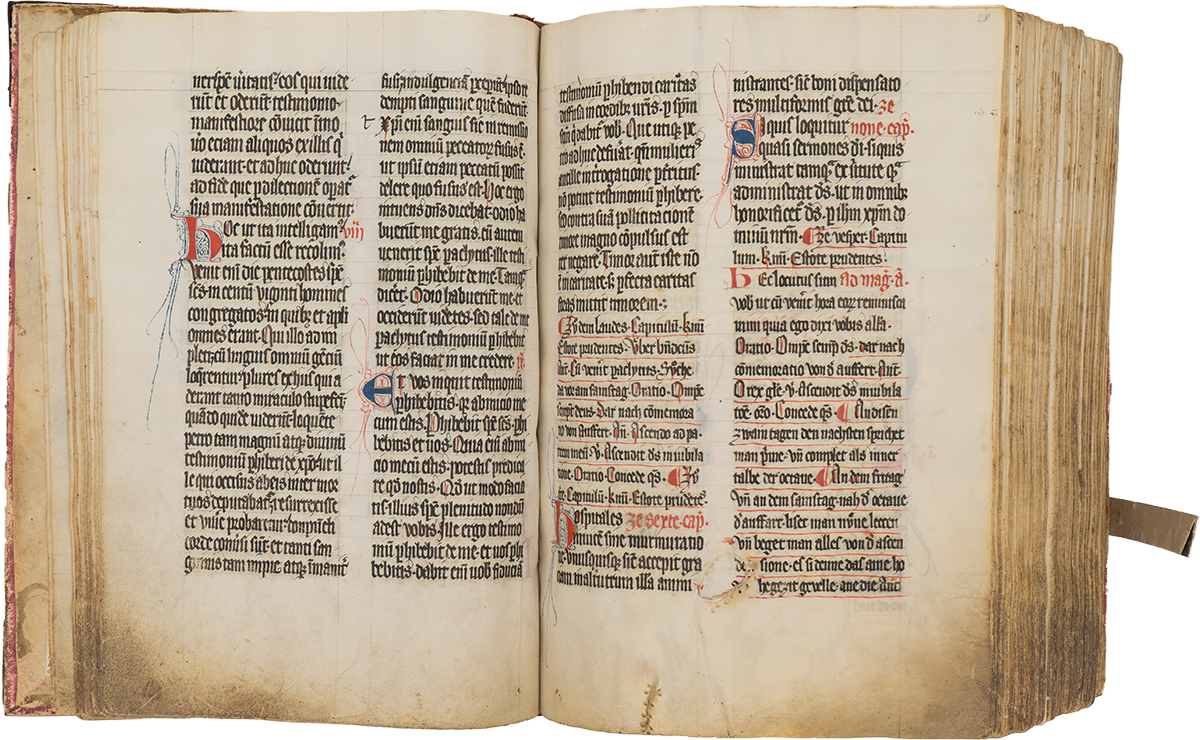 ritatis eos qui vide
rūt et oderūt testimonio
manifestiore cōuicit immo
vō eciam aliquos ex illis q̄
viderant et adhuc oderunt
ad fidē que p dilectionē opat̄
sua manifestatione cōuertit
Hoc ut ita intelligam⁹ viii
ita factū esse recolim⁹
venit eni die pentecostes spc̄
sc̄s in centū viginti homines
congregatos in quibz et apli
omnes erant Qui illo adim
pleti cū linguis omniū gēciū
loq̄rentur plures ex hiis qui
oderant tanto miraculo stupefcī
quādo quidē viderūt loquēte
petro tam magnū atq̄ diuinū
testimoniū phiberi de xp̄o ut il
le qui occisus ab eis inter mor
tuos deputabat̄ resurrexisse
et viue probaretur conpūcti
corde cōuersi sūt et tanti san
guinis tam impie atq̄ īmanit̄
fusi indulgenciā pceperūt ipso re
dempti sanguine quē fuderūt
xp̄i eni sanguis sic in remissio
nem omniū peccatoꝝ fusus ē
ut ipsū etiam peccatū possit
delere quo fusus est Hoc ergo
intuens dn̄s dicebat odio ha
buerūt me gratis cū autem
venerit spc̄ paclytus ille testi
moniū phibebit de me Tamq̄
dicēt Odio habuerūt me et
occiderūt videntes sed tale de me
paclytus testimoniū phibebit
ut eos faciat in me credere
Et vos inquit testimoniū
phibebitis q̄ ab inicio me
cum estis Phibebit spc̄ sc̄s phi
bebitis et uos Quia eni ab ini
cio mecū estis potestis predica
re qd nostis Qd ut modo facia
tis illius spc̄ plenitudo nondū
adest vobis Ille ergo testimo
niū phibebit de me et uos phi
bebitis dabit eni uob̄ fiduciā
testimoniū phibendi caritas
diffusa in cordibz vris p spm̄
sm̄ q dabit̄ vob̄ Que utiqz pe
tro adhuc defuit qn̄ mulieris
ancille introgatione pteritus
nō potuit testimoniū phibere
sed contra suā pollicitacionē
timore magno cōpulsus est
ter negare Timor aut iste nō
ē in caritate sz pfecta caritas
foras mittit timorem
Zv dem laudes Capitulū Kmī
Estote prudentes Vber bn̄dcus
Ant Cū venit paclytus Suche
da vor am samstag Oratio Omps̄
semp̄t deus Dar nach cōmemora
cio von auffert An̄ Ascendo ad pa
trem meū v̄ Ascendit ds̄ in iubila
tione Oratio Concede qs̄ Zv
tc̄ Capitulū Kmī Estote prudētes
Hospitales Ze Sexte cap
inuicē sine murmuratio
ne vnusquisqz sic accepit gra
tiam in alterutrum illā ammi
nistrantes sic boni dispensato
res multiformis grē dei ze
Siquis loquitur none cap
quasi sermones di si quis
ministrat tamq̄ ex v̄tute q̄
administrat ds̄ ut in omnibz
honorificet̄ ds̄ p ihm xpm do
minū nrm Ze vesper Capitu
lum Kmī Estote prudentes
Hec locutus sum ad maḡ a
vob̄ ut cū venit̄ hora eoꝝ reminisca
mini quia ego dixi vobis alla
Oratio Omps̄ semp̄ ds̄ dar nach
cōmemoratio von d̄ auffert Ant̄
O rex glē v̄ Ascendit ds̄ in iubila
tōe orō Concede qs̄ An disen
zwain tagen den nachsten sprichet
man p̄me vn̄ complet als inner
talbe der octave An dem fritag
vn̄ an dem samstag nah d̄ octaue
d̄ auffart liset man nv̄ne lecen
vn̄ beget man alles von d̄ ascen
sione es si denne das aine ho
hegezit gevelle ane die Ant̄